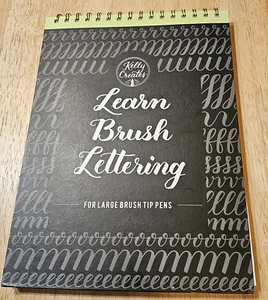 Kelly
Creates
Learn
Brush
Lettering
FOR LARGE BRUSH TIP PENS